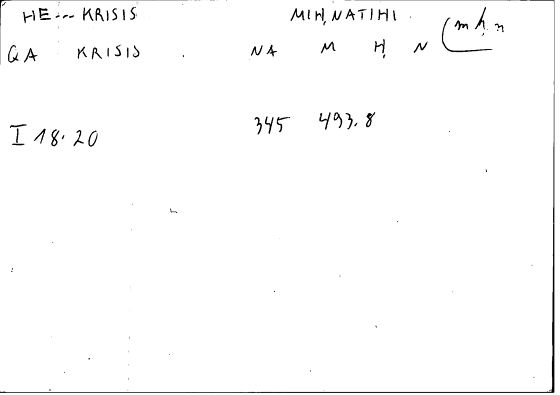 HE--- KRISIS MIḤNATIHI
QA KRISIS . NA M Ḥ N (mḥn
I 18.20 345 493.8